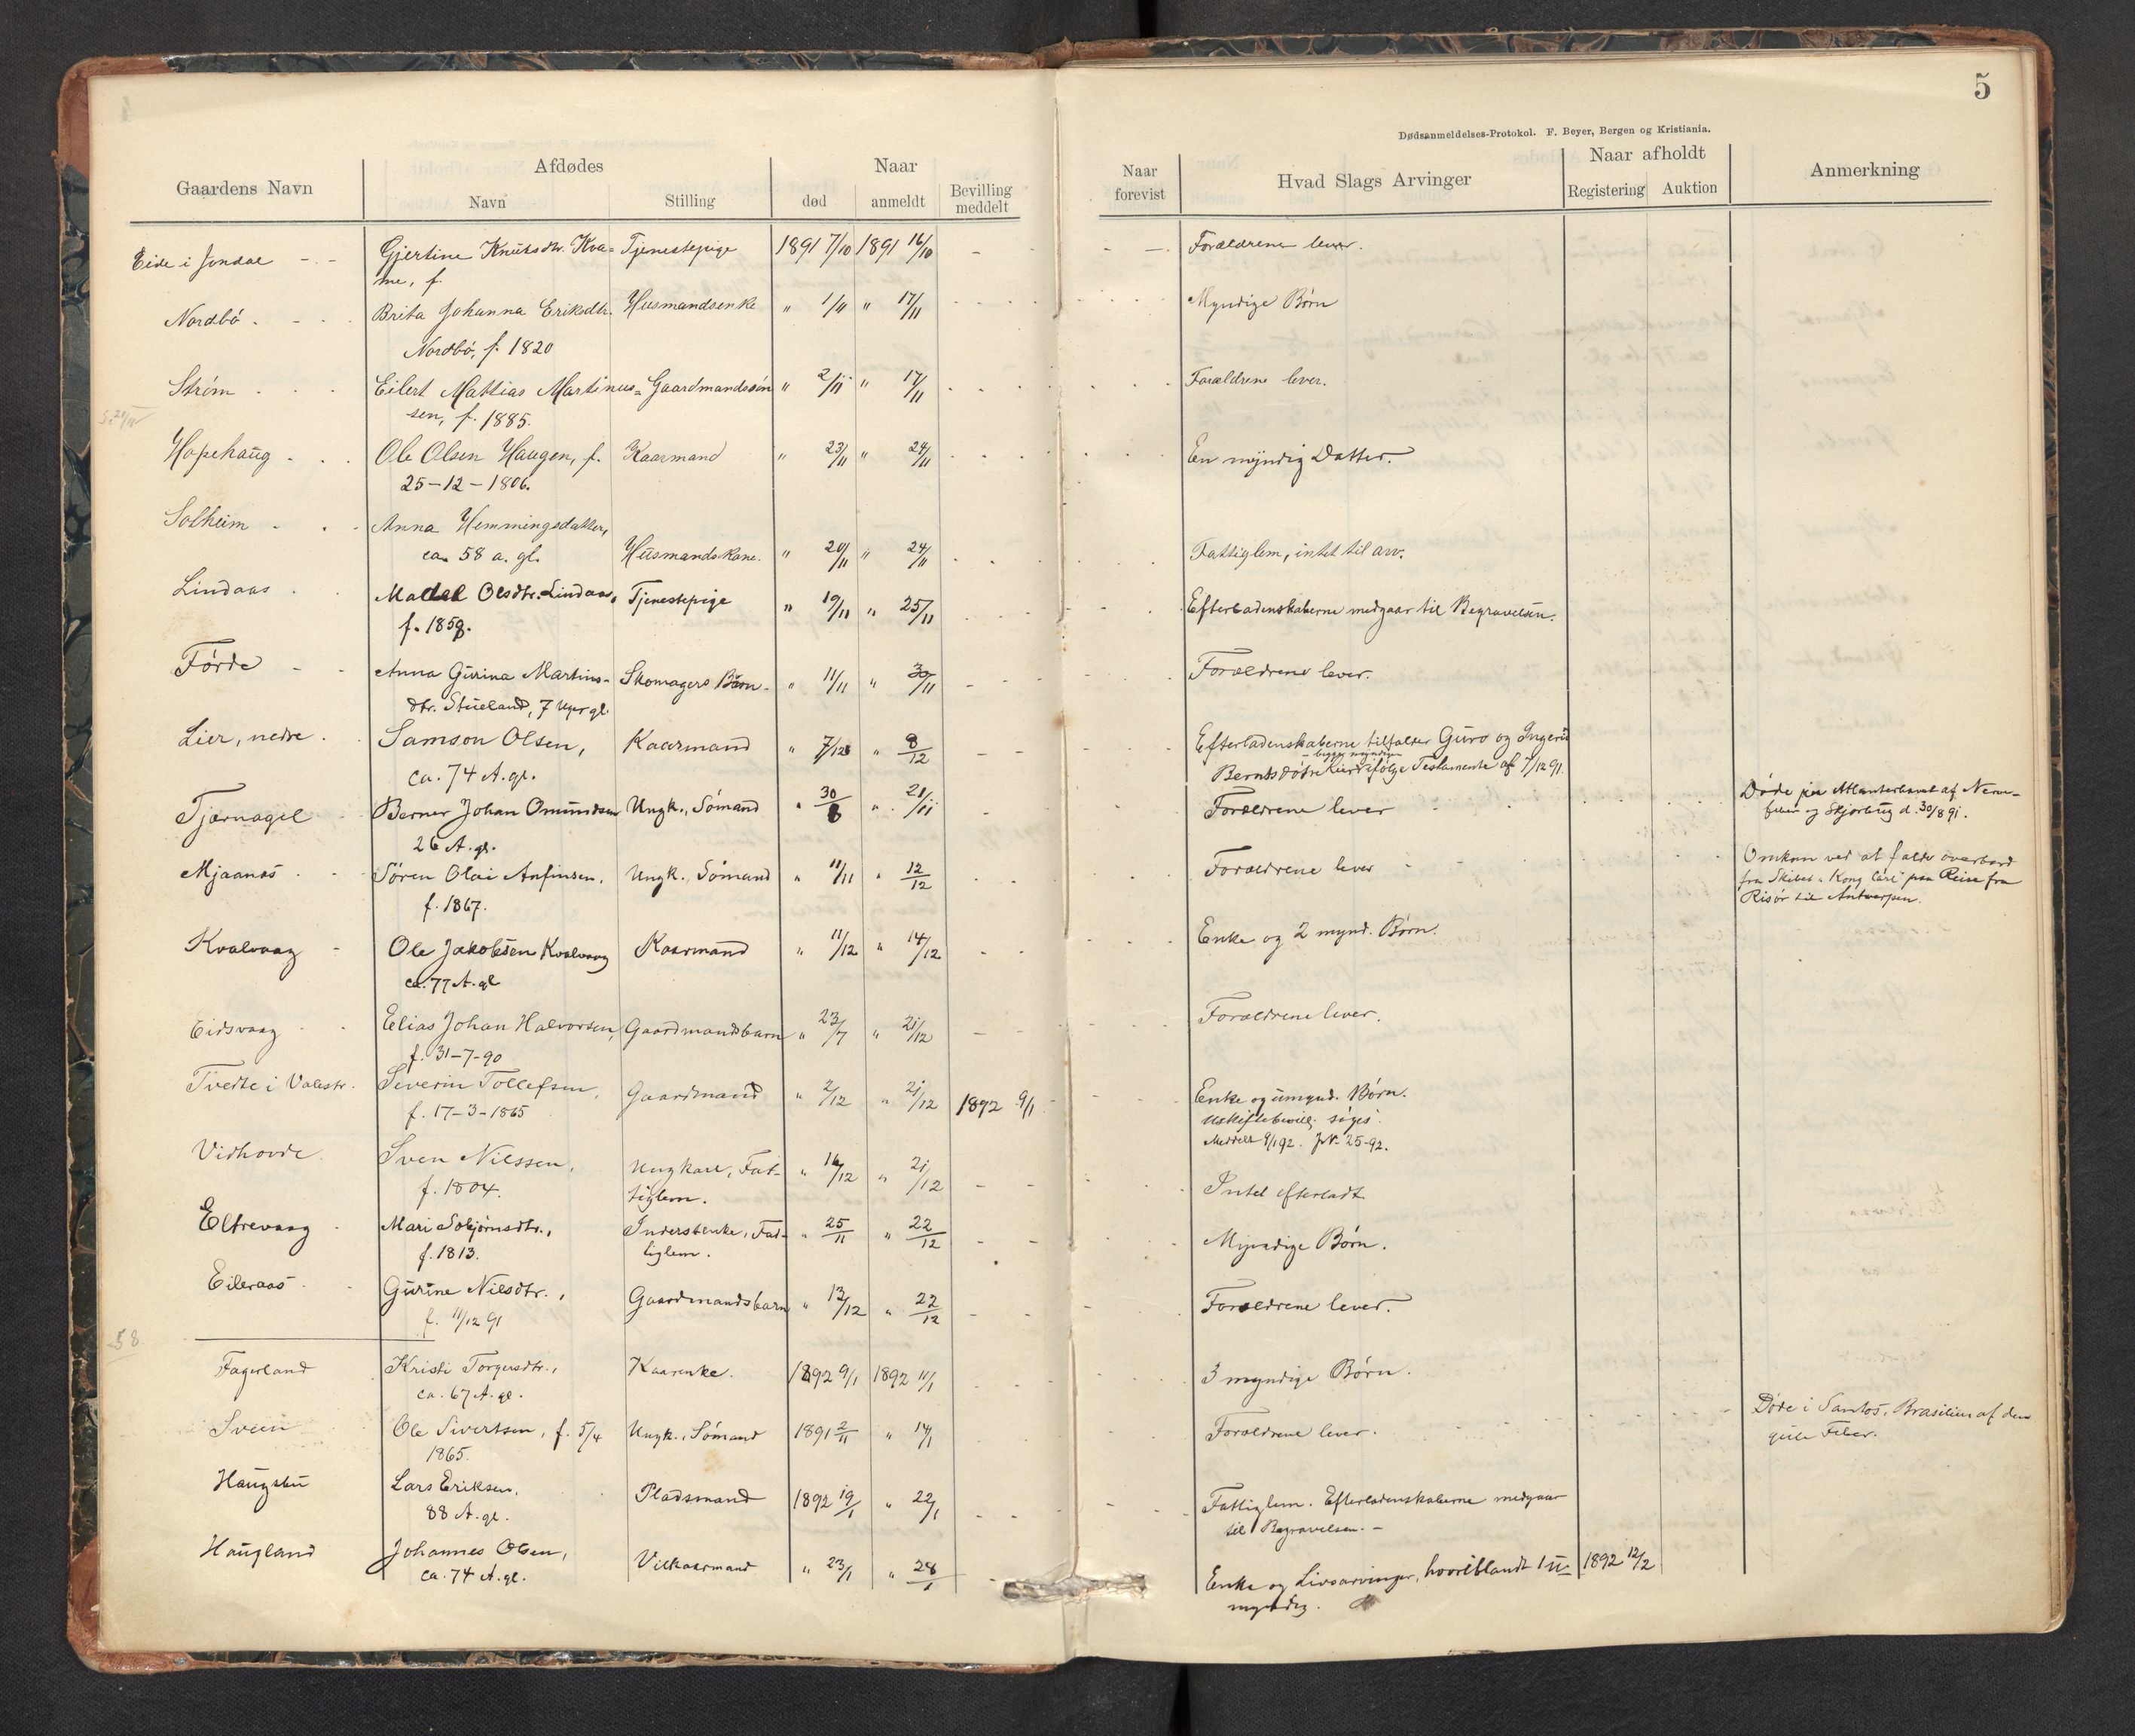 5
Dødsanmeldelses-Protokol. F. Beyer, Bergen og Kristiania.
Gaardens Navn
Afdødes
Navn
Stilling
Naar
død
anmeldt
Bevilling meddelt
Naar forevist
Hvad Slags Arvinger
Naar afholdt
Registering
Auktion
Anmerkning
Eide i Jondal Gjertine Knutsdtr. Kva= Tjenestepige 1891 7/10 1891 16/10 Forældrene lever.
me, f.
Nordbö Brita Johanna Eriksdtr. Husmandsenke " 1/11 " 17/11 Myndige Børn
Nordbö, f. 1820
Ström Eilert Mattias Martinus= Gaardmandssön " 2/11 " 17/11 Forældrene lever.
sen, f. 1885.
Hopehaug Ole Olsen Haugen, f. Kaarmand " 23/11 " 24/11 En myndig Datter.
25-12-1806.
Solheim Anna Hemmingsdatter,
ca. 58 a. gl. Husmandskone. " 20/11 " 24/11 Fattiglem, intet til arv.
Lindaas Madel Olsdtr. Lindaas, Tjenestepige " 19/11 " 25/11 Efterladenskaberne medgaar til Begravelsen.
f. 1859.
Förde Anna Gurina Martins- Skomagers Barn " 11/11 " 30/11 Forældrene lever.
dtr. Stueland, 7 Uger gl.
Lier, nedre Samson Olsen, Kaarmand " 7/12 " 8/12 Efterladenskaberne tilfalder Guro og Ingerid
- begge myndige
ca. 74 A. gl. Berntsdøtre Lier ifølge Testamente af 7/12 91.
Tjærnagel Berner Johan Omundsen Ungk., Sömand " 30/8 " 21/11 Forældrene lever Døde paa Atlanterhavet af Nerve-
26 A. gl. feber og Skjørbug d. 30/8 91.
Mjaanæs Sören Olai Anfinsen, Ungk., Sömand " 11/11 " 12/12 Forældrene lever Omkom ved at falde overbord
f. 1867. fra Skibet "Kong Carl" paa Reise fra
Risör til Antwerpen.
Kvalvaag Ole Jakobsen Kvalvaag Kaarmand " 11/12 " 14/12 Enke og 2 mynd. Børn.
ca. 77 A. gl
Eidsvaag Elias Johan Halvorsen, Gaardmandsbarn " 23/7 " 21/12 Forældrene lever.
f. 31-7-90
Tvedte i Valestr. Severin Tollefsen, Gaardmand " 2/12 " 21/12 1892 9/1 Enke og umynd. Børn.
f. 17-3-1865 Uskiftebevill. søges.
Meddelt 9/1 92. J.N. 25-92.
Vidhovde Sven Nilssen, Ungkarl, Fat- " 16/12 " 21/12 Intet efterladt
f. 1804. tiglem.
Eltrevaag Mari Solsjörnsdtr., Inderstenke, Fat- " 25/11 " 22/12 Myndige Børn.
f. 1813. tiglem.
Eileraas Gurine Nilsdtr., Gaardmandsbarn " 13/12 " 22/12 Forældrene lever.
f. 11/12 91
58
Fagerland Kristi Torgersdtr., Kaarenke. 1892 9/1 1892 11/1 3 myndige Børn.
ca. 67 A. gl.
Sveen Ole Sivertsen, f. 5/4 Ungk., Sömand 1891 2/11 " 14/1 Forældrene lever. Døde i Santos, Brasilien af den
1865. gule Feber.
Haugstu Lars Eriksen, Pladsmand 1892 19/1 " 22/1 Fattiglem. Efterladenskaberne medgaar
88 A. gl. til Begravelsen. -
Haugland Johannes Olsen, Vilkaarmand " 23/1 " 28/1 Enke og Livsarvinger, hvoriblandt 1 u- 1892 12/2
ca. 74 A. gl. myndig.